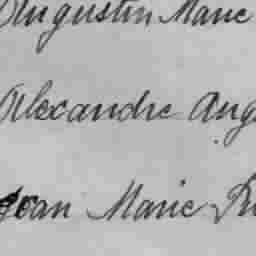 Augustin Marie
Alexandre Aug
Jean Marie